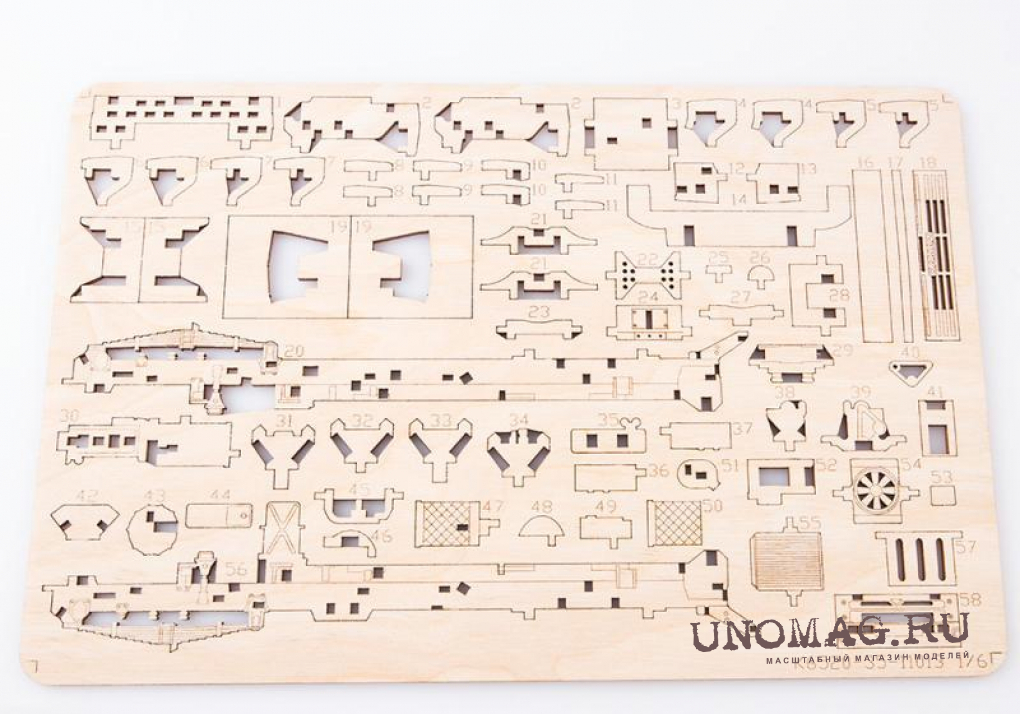 1 2 2 3 4 4 5 5
6 7 7 8 9 10 11 12 13 16 17 18
8 9 10 11 14
15 15 19 19 21
21 22 25 26
24 27 28
23
20 29 40
30 31 32 33 34 35 37 38 39 41
36 51 52 54 53
42 43 44 45 47 48 49 50 55
46
56 57
58
UNOMAG.RU
МАСШТАБНЫЙ МАГАЗИН МОДЕЛЕЙ
1/6